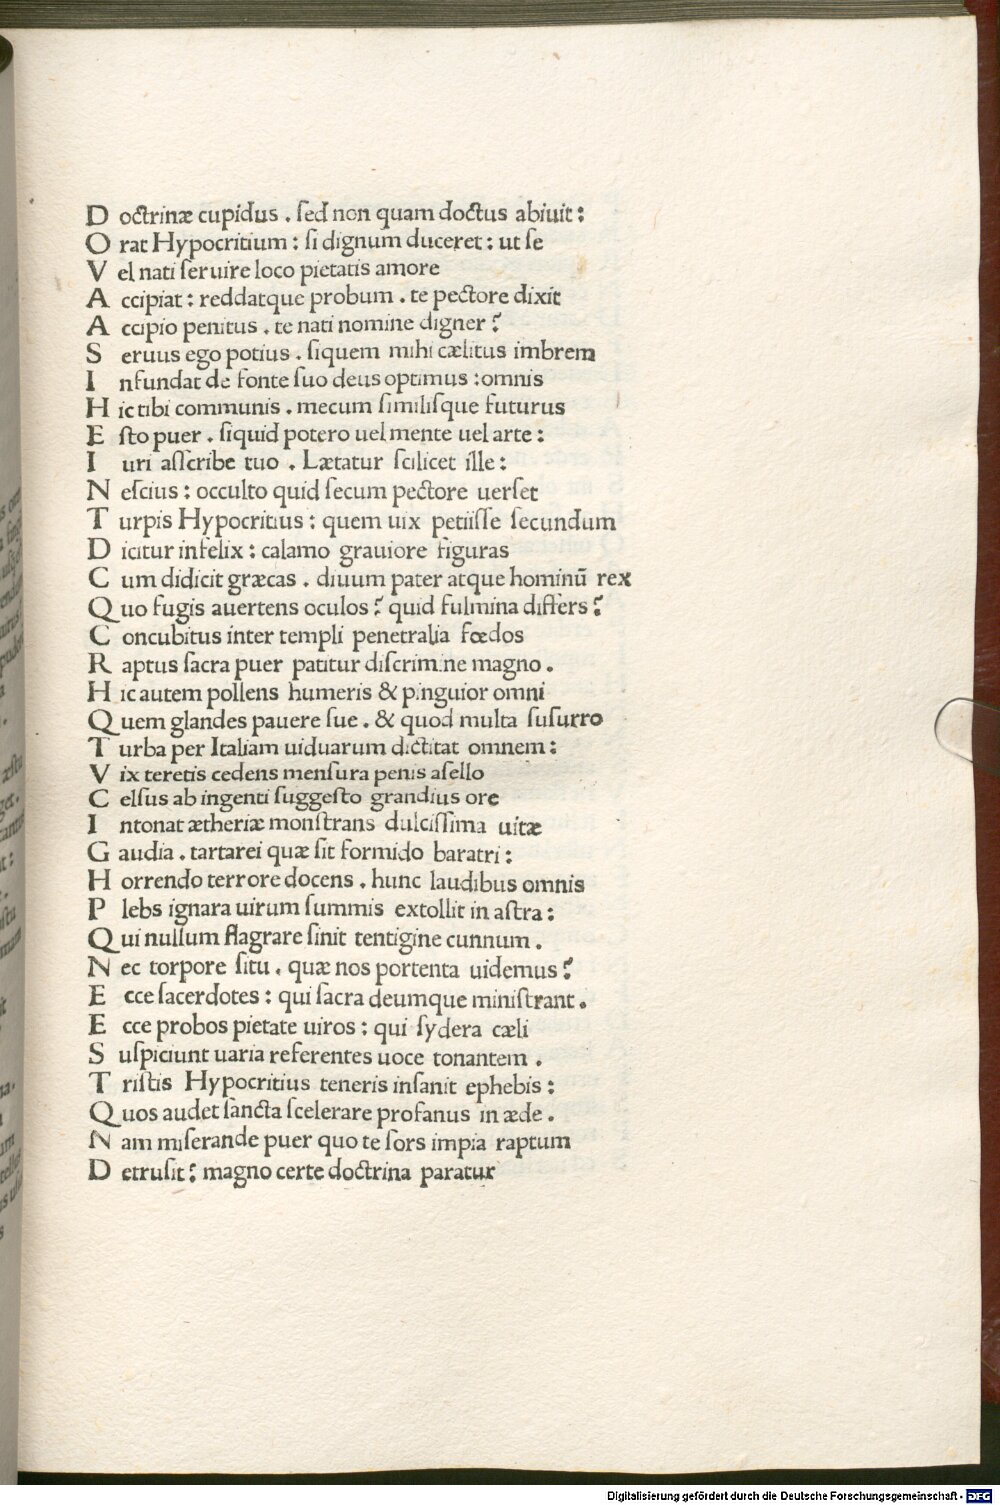 D octrinæ cupidus . sed non quam doctus abiuit :
O rat Hypocritium : si dignum duceret : ut se
V el nati seruire loco pietatis amore
A ccipiat : reddatque probum . te pectore dixit
A ccipio penitus . te nati nomine digner ?
S eruus ego potius . siquem mihi cælitus imbrem
I nfundat de fonte suo deus optimus : omnis
H ic tibi communis . mecum similisque futurus
E sto puer . siquid potero uel mente uel arte :
I uri asscribe tuo . Lætatur scilicet ille :
N escius : occulto quid secum pectore uerset
T urpis Hypocritius : quem uix petiisse secundum
D icitur infelix : calamo grauiore figuras
C um didicit græcas . diuum pater atque hominū rex
Q uo fugis auertens oculos ? quid fulmina differs ?
C oncubitus inter templi penetralia fœdos
R aptus sacra puer patitur discrimine magno .
H ic autem pollens humeris & pinguior omni
Q uem glandes pauere sue . & quod multa susurro
T urba per Italiam uiduarum dictitat omnem :
V ix teretis cedens mensura penis asello
C elsus ab ingenti suggesto grandius ore
I ntonat ætheriæ monstrans dulcissima uitæ
G audia . tartarei quæ sit formido baratri :
H orrendo terrore docens . hunc laudibus omnis
P lebs ignara uirum summis extollit in astra :
Q ui nullum flagrare sinit tentigine cunnum .
N ec torpore situ . quæ nos portenta uidemus ?
E cce sacerdotes : qui sacra deumque ministrant .
E cce probos pietate uiros : qui sydera cæli
S uspiciunt uaria referentes uoce tonantem .
T ristis Hypocritius teneris insanit ephebis :
Q uos audet sancta scelerare profanus in æde .
N am miserande puer quo te sors impia raptum
D etrusit ? magno certe doctrina paratur
Digitalisierung gefördert durch die Deutsche Forschungsgemeinschaft - DFG